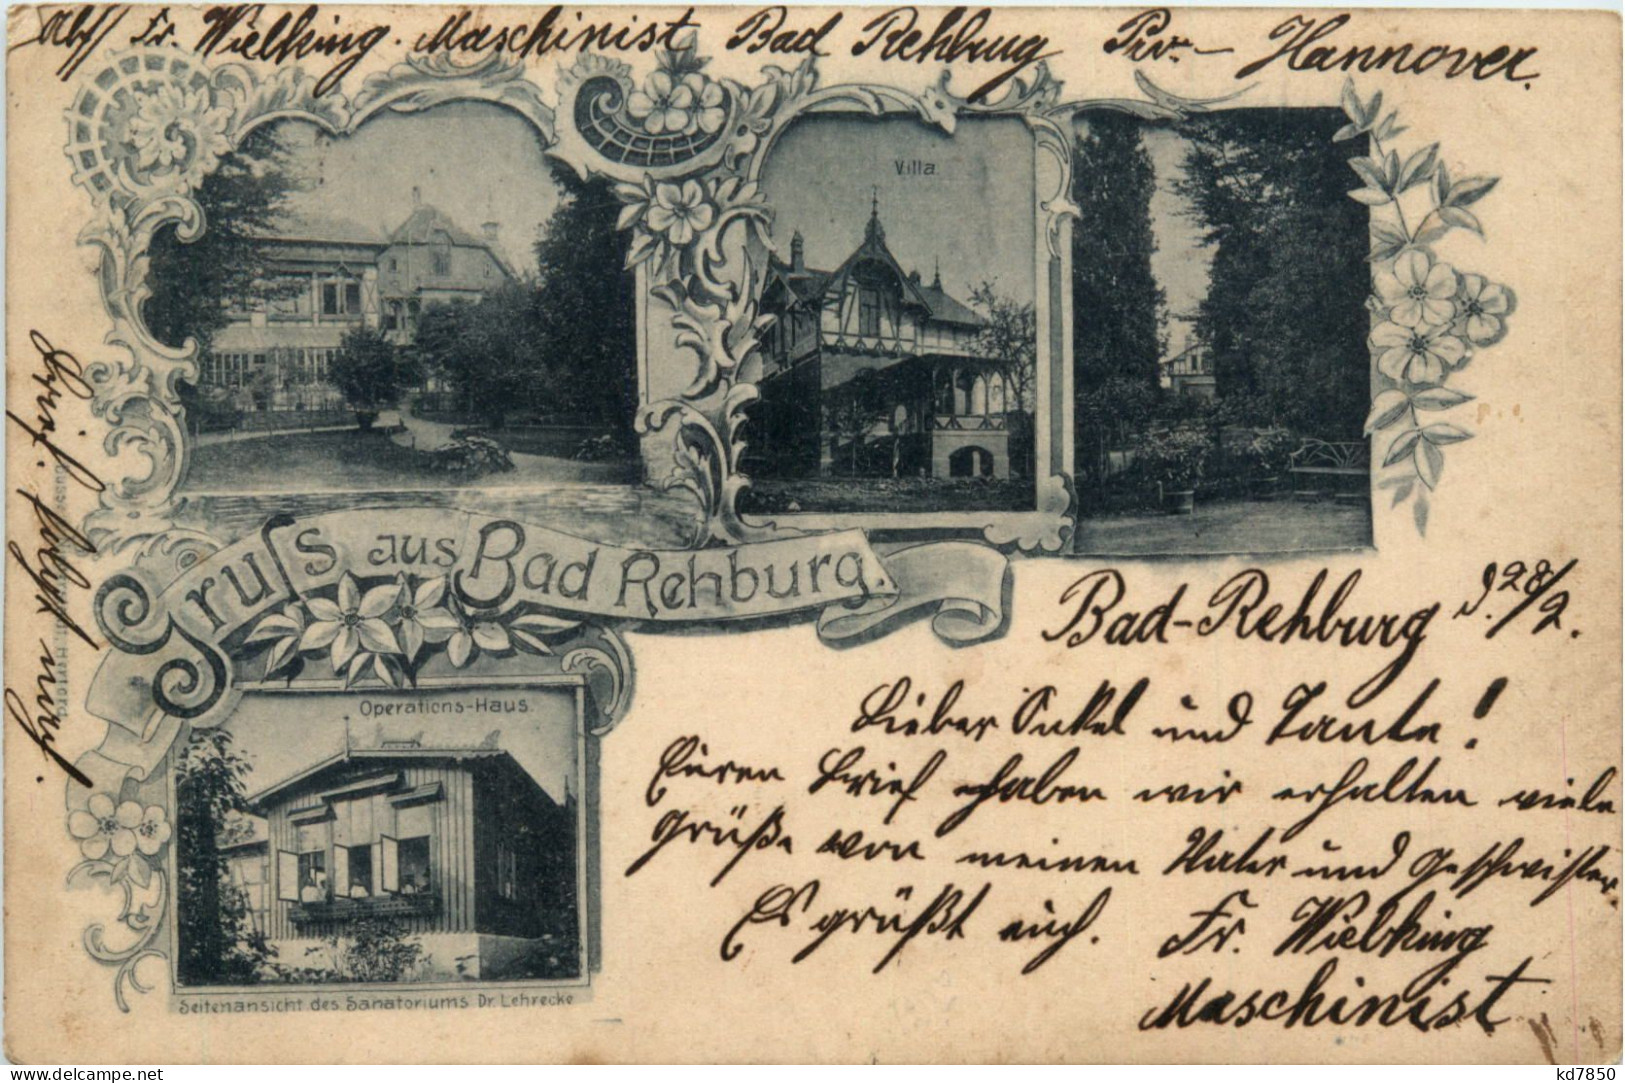 Abs/ Fr. Wielking. Maschinist Bad Rehburg Prv. Hannover.
Villa.
Gruss aus Bad Rehburg.
Operations-Haus.
Seitenansicht des Sanatoriums Dr. Lehrecke
Bad-Rehburg d. 28/2.
Lieber Onkel und Tante!
Euren Brief haben wir erhalten viele
Grüße von meinen Vater und Geschwister
Es grüßt euch. Fr. Wielking
Maschinist
Brief folgt
kd7850